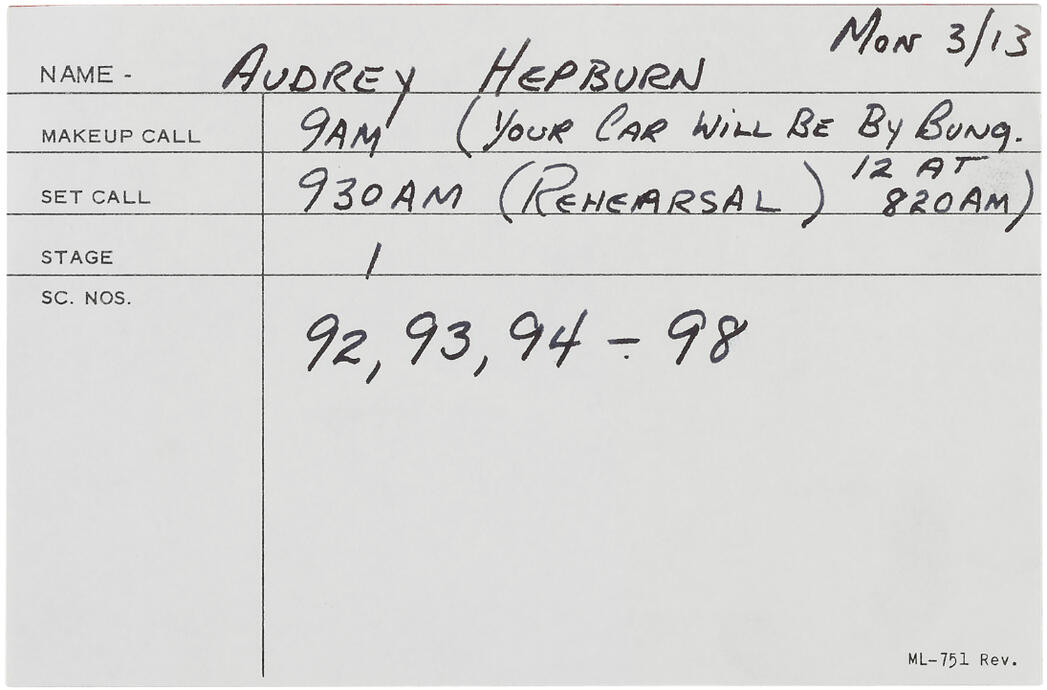 MON 3/13
NAME - AUDREY HEPBURN
MAKEUP CALL 9AM (YOUR CAR WILL BE BY BUNG.
12 AT
SET CALL 930AM (REHEARSAL) 820AM)
STAGE 1
SC. NOS.
92, 93, 94 - 98
ML-751 Rev.